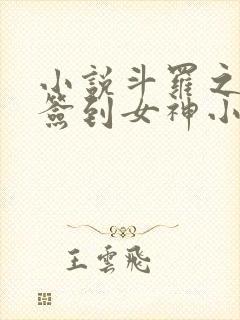 小說斗羅之
簽到女神小
王雲飛